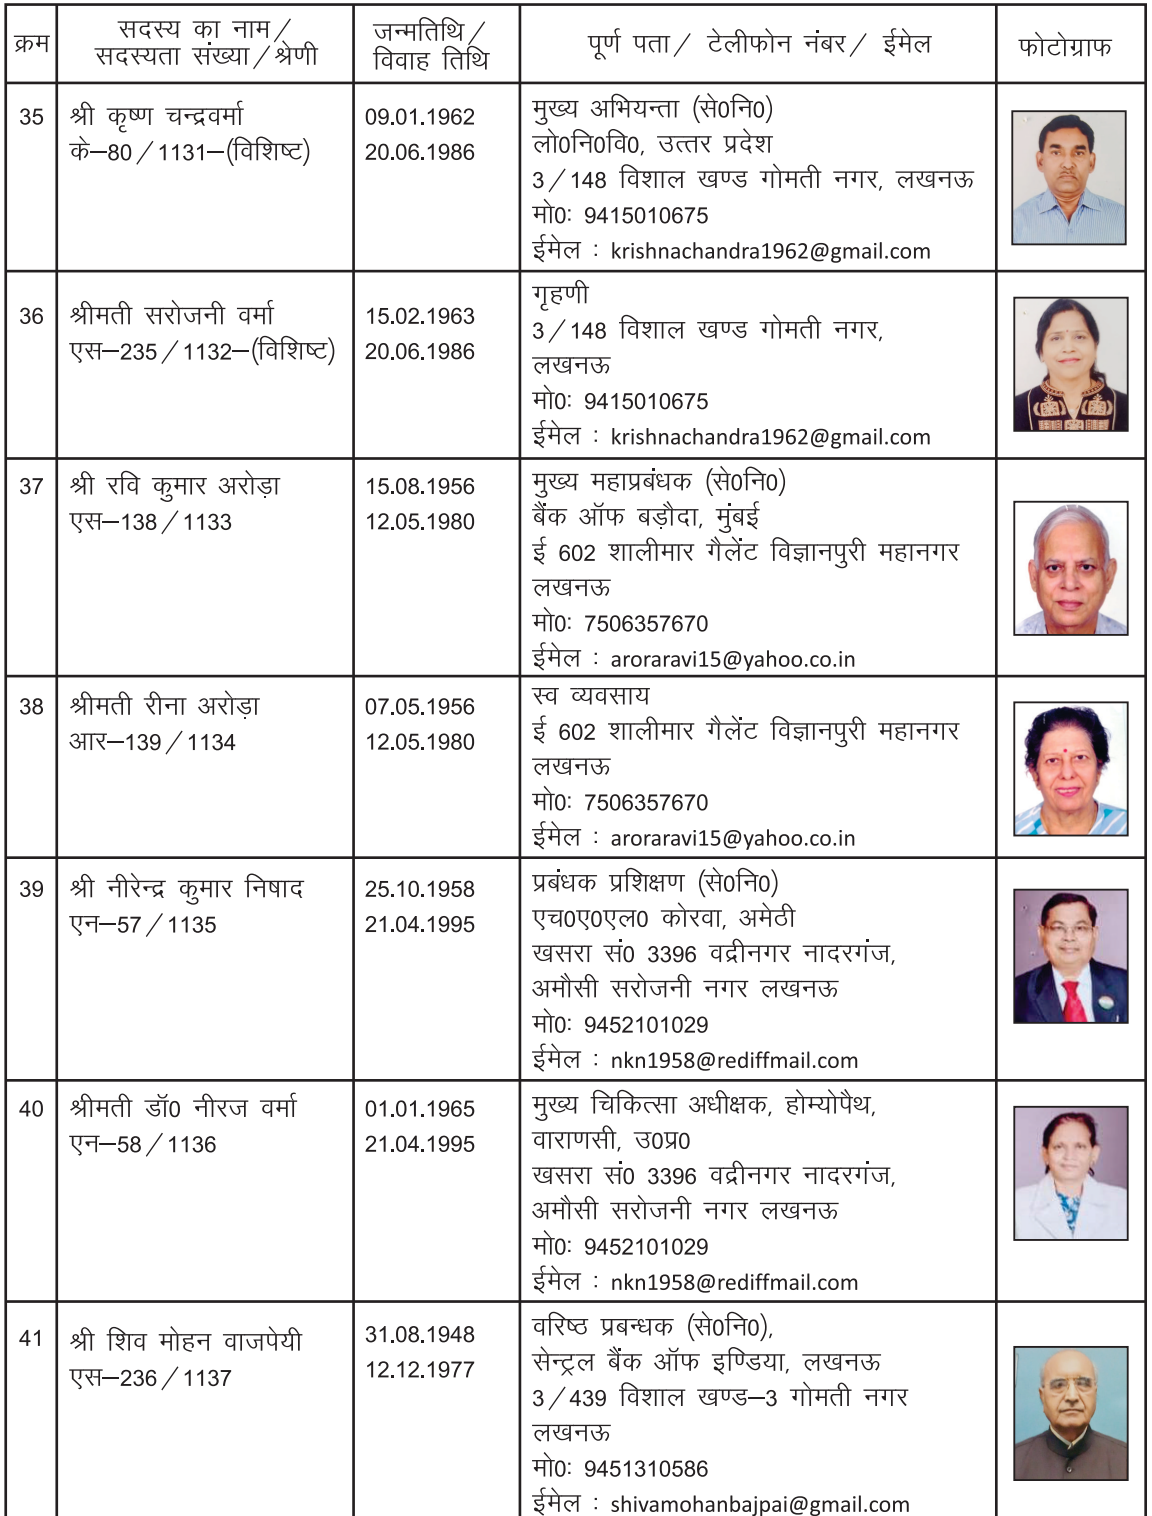 क्रम
सदस्य का नाम/
सदस्यता संख्या/श्रेणी
जन्मतिथि/
विवाह तिथि
पूर्ण पता/ टेलीफोन नंबर/ ईमेल
फोटोग्राफ
35
श्री कृष्ण चन्द्रवर्मा
के–80/1131–(विशिष्ट)
09.01.1962
20.06.1986
मुख्य अभियन्ता (से0नि0)
लो0नि0वि0, उत्तर प्रदेश
3/148 विशाल खण्ड गोमती नगर, लखनऊ
मो0: 9415010675
ईमेल : krishnachandra1962@gmail.com
36
श्रीमती सरोजनी वर्मा
एस–235/1132–(विशिष्ट)
15.02.1963
20.06.1986
गृहणी
3/148 विशाल खण्ड गोमती नगर,
लखनऊ
मो0: 9415010675
ईमेल : krishnachandra1962@gmail.com
37
श्री रवि कुमार अरोड़ा
एस–138/1133
15.08.1956
12.05.1980
मुख्य महाप्रबंधक (से0नि0)
बैंक ऑफ बड़ौदा, मुंबई
ई 602 शालीमार गैलेंट विज्ञानपुरी महानगर
लखनऊ
मो0: 7506357670
ईमेल : aroraravi15@yahoo.co.in
38
श्रीमती रीना अरोड़ा
आर–139/1134
07.05.1956
12.05.1980
स्व व्यवसाय
ई 602 शालीमार गैलेंट विज्ञानपुरी महानगर
लखनऊ
मो0: 7506357670
ईमेल : aroraravi15@yahoo.co.in
39
श्री नीरेन्द्र कुमार निषाद
एन–57/1135
25.10.1958
21.04.1995
प्रबंधक प्रशिक्षण (से0नि0)
एच0ए0एल0 कोरवा, अमेठी
खसरा सं0 3396 वद्रीनगर नादरगंज,
अमौसी सरोजनी नगर लखनऊ
मो0: 9452101029
ईमेल : nkn1958@rediffmail.com
40
श्रीमती डॉ0 नीरज वर्मा
एन–58/1136
01.01.1965
21.04.1995
मुख्य चिकित्सा अधीक्षक, होम्योपैथ,
वाराणसी, उ0प्र0
खसरा सं0 3396 वद्रीनगर नादरगंज,
अमौसी सरोजनी नगर लखनऊ
मो0: 9452101029
ईमेल : nkn1958@rediffmail.com
41
श्री शिव मोहन वाजपेयी
एस–236/1137
31.08.1948
12.12.1977
वरिष्ठ प्रबन्धक (से0नि0),
सेन्ट्रल बैंक ऑफ इण्डिया, लखनऊ
3/439 विशाल खण्ड–3 गोमती नगर
लखनऊ
मो0: 9451310586
ईमेल : shivamohanbajpai@gmail.com